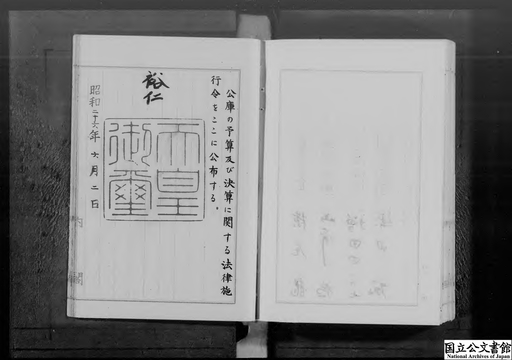 公庫の予算及び決算に関する法律施
行令をここに公布する。
裕仁
天皇
御璽
昭和二十六年六月二日
内閣
国立公文書館
National Archives of Japan